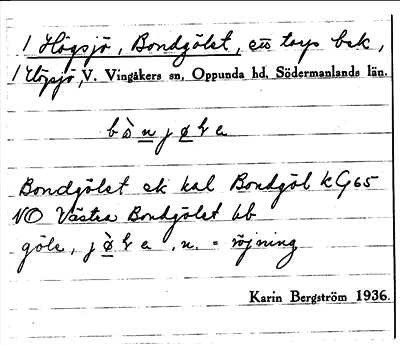 1 Högsjö, Bondgölet, ett torp bsk,
1 Högsjö, V. Vingåkers sn, Oppunda hd, Södermanlands län.
Bondgölet ek kal Bondgöl kG65
NO Västra Bondgölet bb
göle, n. = röjning
Karin Bergström 1936.